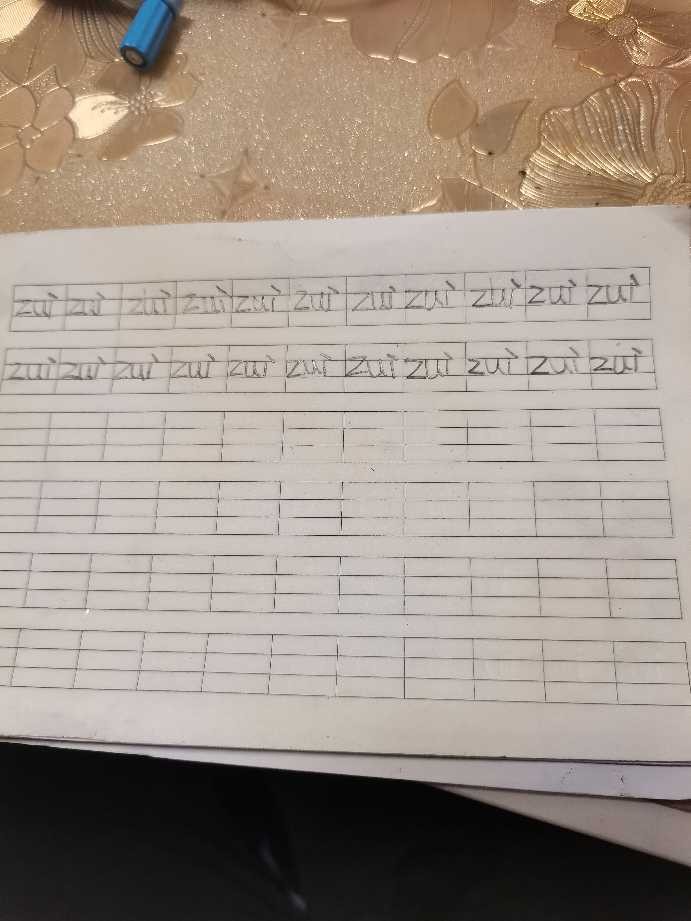 zuì zuì zuì zuì zuì zuì zuì zuì zuì zuì zuì
zuì zuì zuì zuì zuì zuì zuì zuì zuì zuì zuì